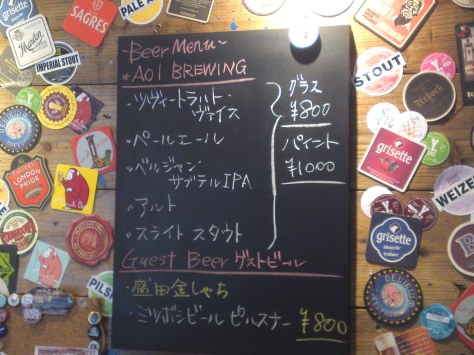 ~Beer Menu~
★AOI BREWING
・ツヴィートラルト・
ヴァイス
・ペールエール
・ベルジャン・
サブテルIPA
・アルト
・スライト スタウト
グラス
¥800
パイント
¥1000
Guest Beer ゲストビール
・盛田金しゃち
・ミツボシビール ピルスナー ¥800
grisette
SAGRES
PALE A
IMPERIAL STOUT
LONDON
PRIDE
PILS
STOUT
grisette
WEIZE
grisette